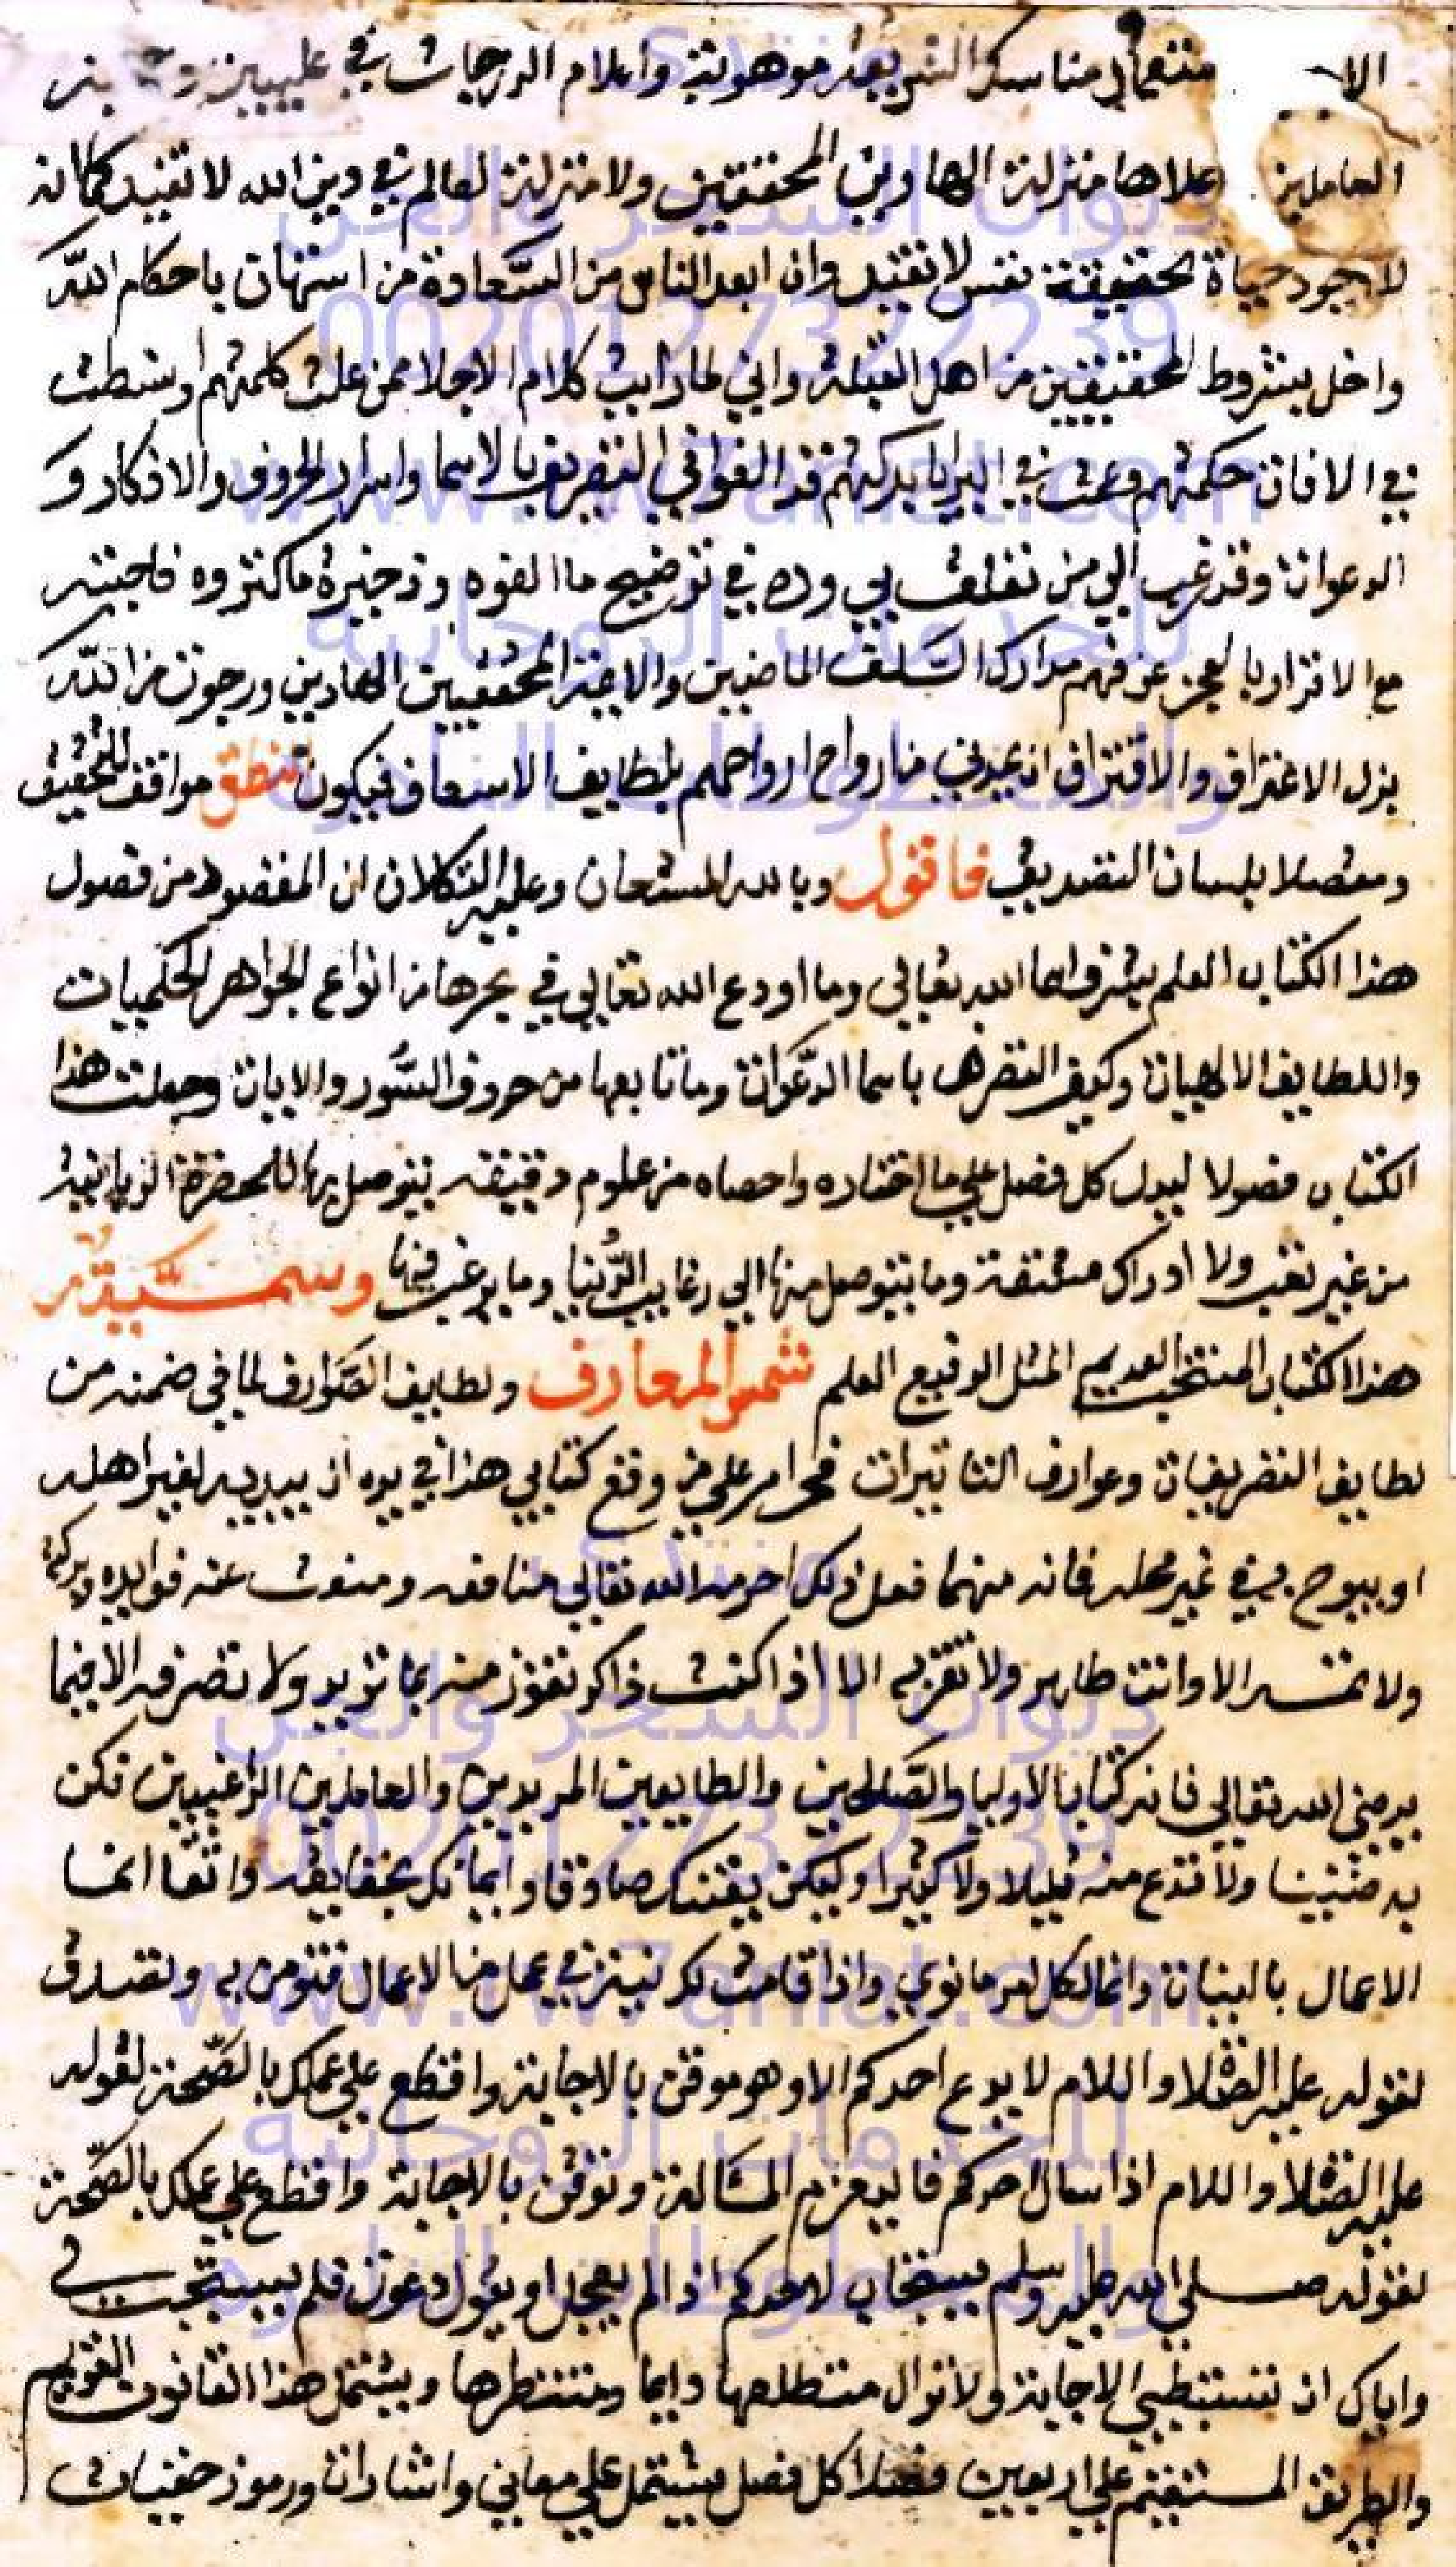 الا منتهما في مناسك الشريعة موهوبة واعلام الدرجات في عليين
العاملين علاها منزلة الهاوين المحققين ولا منزلة لعالم في دين الله لا تقيد كما انه
لا وجود حياة حقيقة نفس لا تقيد وان ابعد الناس من السعادة من استهان باحكام الله
واخل بشروط المحققين من اهل القبلة واني لما رايت كلام الاجلا ممن علت كلمتهم وبسطت
في الافاق حكمتهم وعمت في البرايا بركتهم قد الفوا في التصريف بالاسما واسرار الحروف والاذكار و
الدعوات وقد رغب الي من تعلق بي وده في توضيح ما الفوه وذخيرة ما كنزوه فاجبته
مع الاقرار بالعجز عن فهم مدارك السلف الماضيين والايمة المحققين الهاديين ورجوت من الله
بزل الاغتراف والاقتراف ان يمدني من ارواح ارواحهم بلطايف الاسعاف فيكون المنطق موافق للتحقيق
ومتصلا بلسان التصديق فاقول وبالله المستعان وعليه التكلان ان المقصود من فصول
هذا الكتاب العلم بشرف اسما الله تعالى وما اودع الله تعالي في بحرها من انواع الجواهر الحكميات
واللطايف الالهيات وكيف التصرف باسما الدعوات وما تابعها من حروف السور والايات وجعلت هذا
الكتاب فصولا ليدل كل فصل علي ما اختاره واحصاه من علوم دقيقه يتوصل بها للحضرة الربانية
من غير تعب ولا ادراك مشقة وما يتوصل منها الي رغايب الدنيا وما يرغب فيها وسميته
هذا الكتاب المنتخب العديم المثل الرفيع العلم شمس المعارف ولطايف العوارف لما في ضمنه من
لطايف التصريفات وعوارف التاثيرات فحرام علي من وقع كتابي هذا في يده ان يبديه لغير اهله
او يبوح به في غير محله فانه مهما فعل ذلك احرمه الله تعالي منافعه ومنعت عنه فوايده وبركته
ولا تمسه الا وانت طاهر ولا تقربه الا اذا كنت ذاكر تفوز منه بما تريد ولا تصرفه الا فيما
يرضي الله تعالي فانه كتاب الاوليا والصالحين والطايعين المريدين والعاملين الراغبين فكن
به ضنينا ولا تدع منه قليلا ولا كثيرا وليكن يقينك صادقا وايمانك بحقايقه واثقا انما
الاعمال بالنيات وانما لكل امر مانوي واذا قامت لك نية في عمل من الاعمال فتومن به وتصدق
لقوله عليه الصلاة والسلام لا يدع احدكم الا وهو موقن بالاجابة واقطع علي عملك بالصحة لقوله
عليه الصلاة والسلام اذا سال احدكم فاليعزم المسالة وتوقن بالاجابة واقطع علي عملك بالصحة
لقوله صلي الله عليه وسلم يستجاب لاحدكم اذا لم يعجل او يقول دعوت فلم يستجب لي
واياك ان تستبطي الاجابة ولا تزال متطلعها دايما ومنتظرها ويشتمل هذا القانون القويم
والطريق المستقيم علي اربعين فصلا كل فصل يشتمل علي معاني واشارات ورموز خفيات